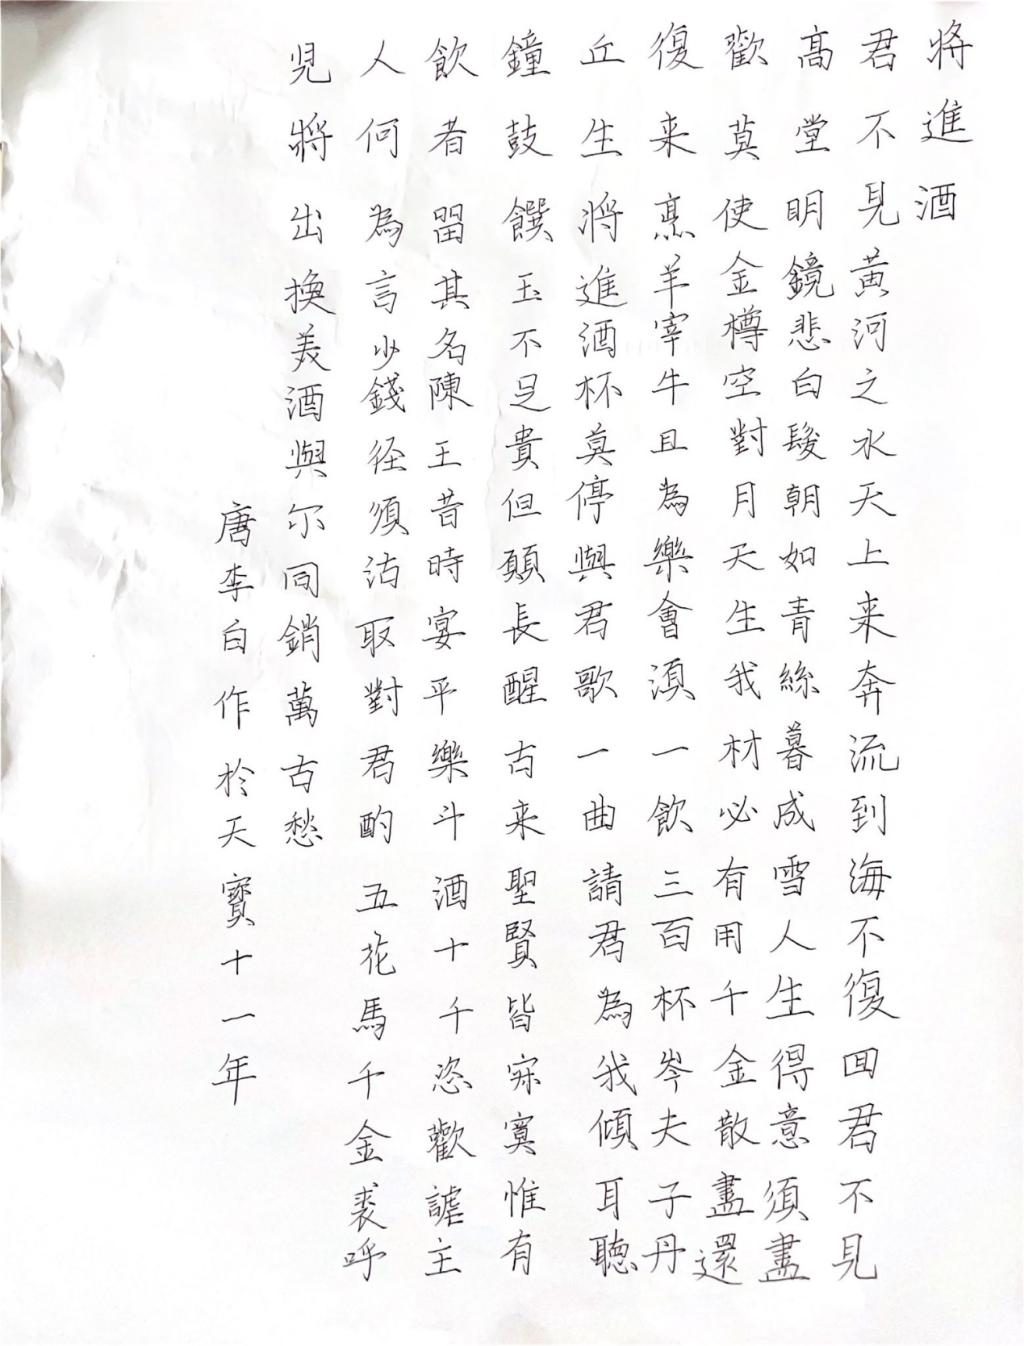 將進酒
君不見黃河之水天上来奔流到海不復回君不見
高堂明鏡悲白髮朝如青絲暮成雪人生得意須盡
歡莫使金樽空對月天生我材必有用千金散盡還
復来烹羊宰牛且為樂會須一飲三百杯岑夫子丹
丘生將進酒杯莫停與君歌一曲請君為我傾耳聽
鐘鼓饌玉不足貴但願長醒古来聖賢皆寂寞惟有
飲者留其名陳王昔時宴平樂斗酒十千恣歡謔主
人何為言少錢径須沽取對君酌五花馬千金裘呼
児將出換美酒與尔同銷萬古愁
唐李白作於天寶十一年